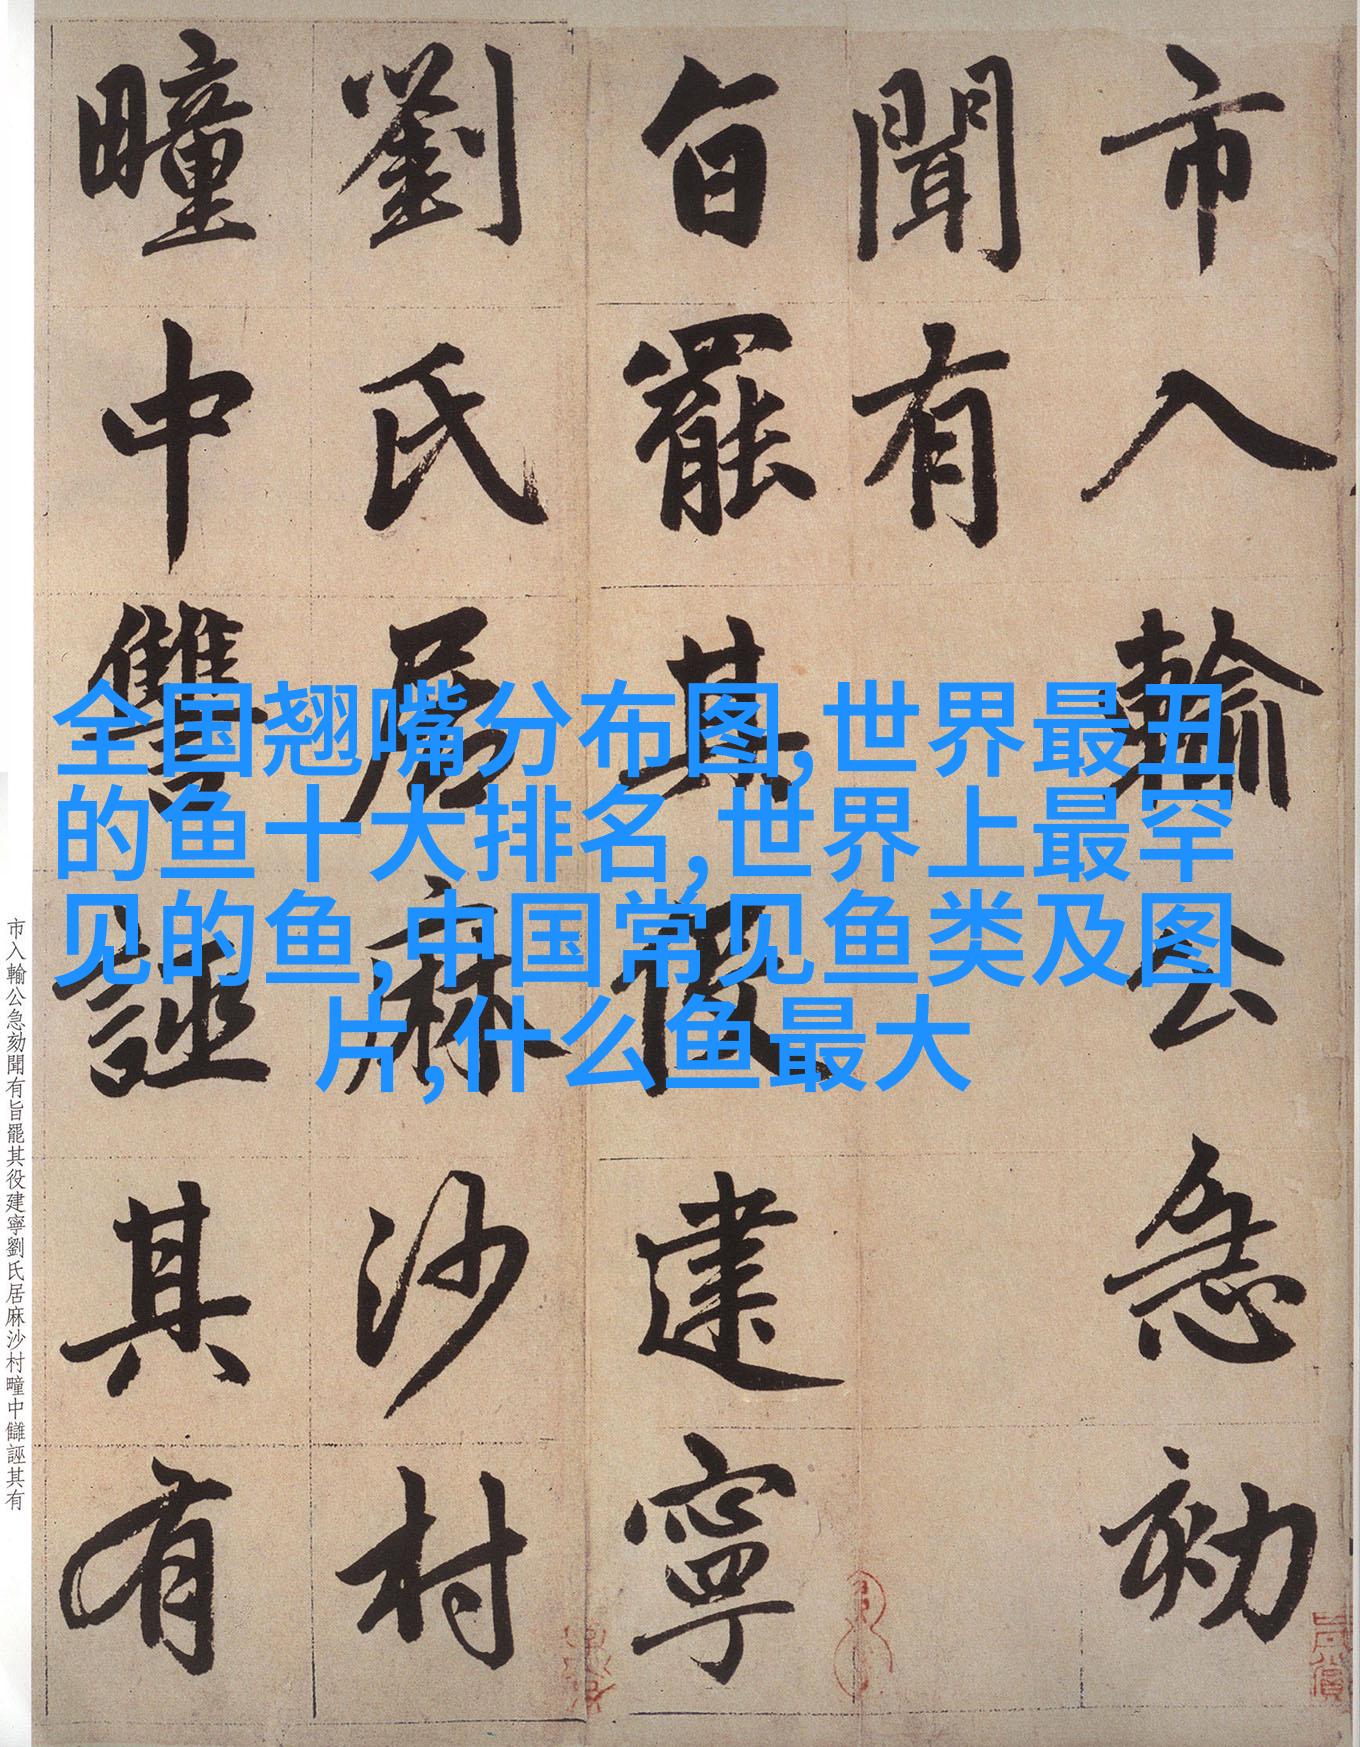 市入輸公急劾
聞有
旨罷其役建寧
劉氏居麻沙村
疃中讐誣其有
全国翘嘴分布图,世界最丑
的鱼十大排名,世界上最罕
见的鱼,中国常见鱼类及图
片,什么鱼最大
市入輸公急劾聞有旨罷其役建寧劉氏居麻沙村疃中讎誣其有